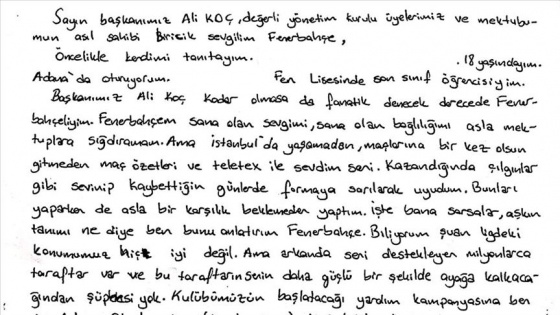 Sayın başkanımız Ali KOÇ, değerli yönetim kurulu üyelerimiz ve mektubu-
mun asıl sahibi Biricik sevgilim Fenerbahçe,
Öncelikle kendimi tanıtayım. . 18 yaşındayım.
Adana'da oturuyorum. Fen Lisesinde son sınıf öğrencisiyim.
Başkanımız Ali Koç kadar olmasa da fanatik denecek derecede Fener-
bahçeliyim. Fenerbahçem sana olan sevgimi, sana olan bağlılığımı asla mek-
tuplara sığdıramam. Ama istanbul'da yaşamadan, maçlarına bir kez olsun
gitmeden maç özetleri ve teletex ile sevdim seni. Kazandığında çılgınlar
gibi sevinip kaybettiğin günlerde formaya sarılarak uyudum. Bunları
yaparken de asla bir karşılık beklemeden yaptım. işte bana sorsalar, aşkın
tanımı ne diye ben bunu anlatırım Fenerbahçe. Biliyorum şuan ligdeki
konumumuz hiç iyi değil. Ama arkanda seni destekleyen milyonlarca
taraftar var ve bu taraftarın senin daha güçlü bir şekilde ayağa kalkaca-
ğından şüphesi yok. Kulübümüzün başlatacağı yardım kampanyasına ben